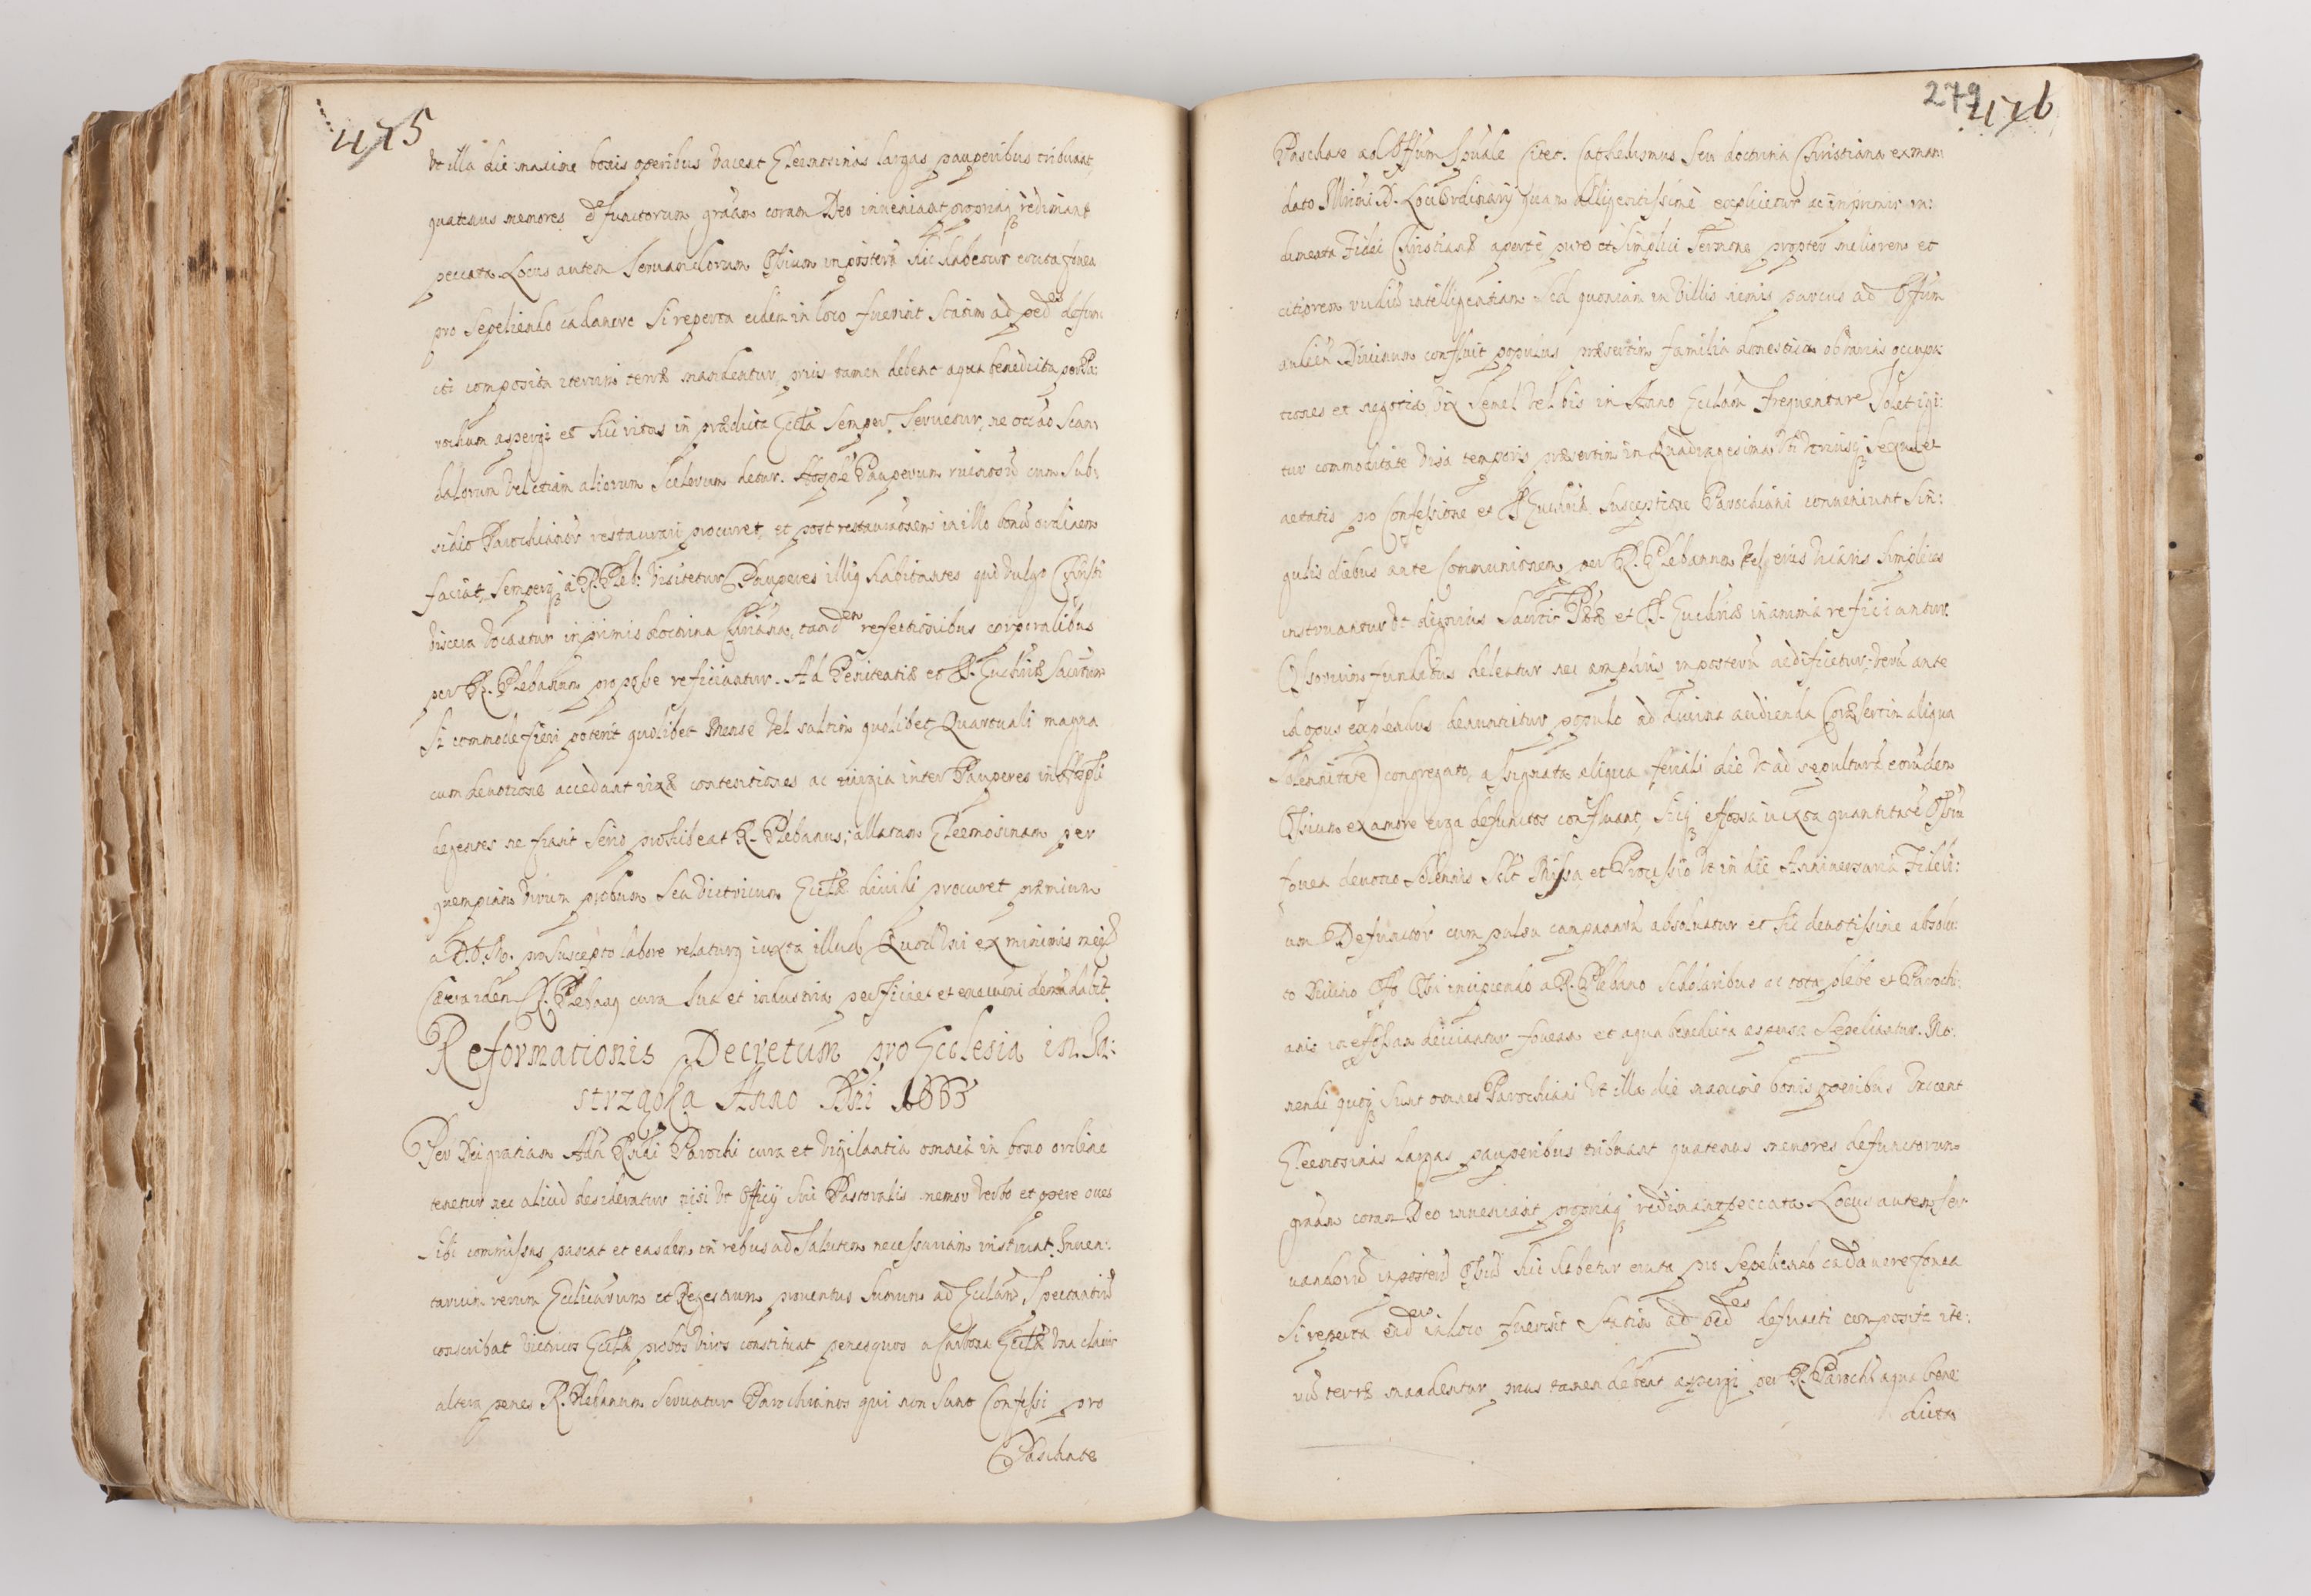 475
Ut illa die maxime bonis operibus vacent Eleemosinas largas pauperibus tribuant,
quatenus memores defunctorum gratiam coram Deo inveniant propriaq redimant
peccata Locus autem Servandorum Ossium inposterũ sic habetur eruta fovea
pro Sepeliendo cadavere Si reperta eidem in loco fuerint Statim ad pedes defun
cti composita iterum terræ mandentur, prius tamen debent aqua benedicta per Pa:
rochum aspergi et hic ritus in prædicta Eccla Semper Servetur, ne occao Scan
dalorum Vel etiam aliorum Scelerum detur. Hosple Pauperum ruinosũ cum Sub:
sidio Parochianorũ restaurari procuret, et post restaurationem in illo bonũ ordinem
faciat, Semperq a R. Pleb: visitetur Pauperes illiq habitantes quid vulgo Christi
viscera vocantur inprimis doctrina Chriana, tandem refectionibus corporalibus
per R. Plebanum pro posse reficiantur. Ad Penitentiæ et SS. Euchriæ Sacrtum
Si commode fieri poterit quolibet Mense vel saltim quolibet Quartuali magna
cum devotione accedant rixæ contentiones ac iurgia inter Pauperes in Hospli
degentes ne fiant Serio prohibeat R. Plebanus; allatam Eleemosinam per
quempiam virum probum Seu Victricum Ecclæ dividi procuret præmium
a D. O. M. pro suscepto labore relaturq iuxta illud, Quod Uni ex minimis meis
Cætera idem R. Plebanq cura Sua et industria perficiet et execuoni demandabit.
Reformationis Decretum pro Ecclesia in Ja:
strząbka Anno Dni 1663
Per Dei gratiam Adm Rndi Parochi cura et Vigilantia omnia in bono ordine
tenetur nec aliud desideratur nisi Ut Officij Sui Pastoralis memor verbo et opere oves
Sibi commissas pascat et easdem in rebus ad Salutem necessariam instruat. Inven:
tarium rerum Ecclicarum et Regestrum proventus Suorum ad Ecclam Spectantiũ
conscribat Victricos Ecclæ probos viros constituat penes quos a Carbona Ecclæ Una clavis
altera penes R. Plebanum Servatur Parochianos qui non Sunt Confessi pro
Paschate
279 476
Paschate ad Offum Spuale Citet. Cathedismus Seu doctrina Christiana ex man
dato Illrimi D. Loci Ordinarij quam diligentissime explicetur ac inprimis in:
dumenta Fidei Christianæ aperte pure et Simplici Sermone propter meliorem et
citiorem rudiũ intelligentiam Sed quoniam in Villis nimis parcus ad Offum
Divinum confluit populus præsertim familia domestica ob varias occupa
tiones et negotia vix Semel vel bis in Anno Ecclam frequentare Solet igi:
tur commoditate visa temporis præsertim in Quadragesima Ubi utriusq Sexus et
aetatis pro Confessione et SS. Euchriæ Susceptione Parochiani conveniunt Sin:
gulis diebus ante Communionem per R. Plebanum Vel eius Vicarios Simplices
instruantur Ut dignius Sacrto Pntæ et SS. Euchriæ in anima reficiantur.
Ossorium funditus deleatur nec amplius inposterũ aedificetur, verũ ante
id opus explendus denuntietur populo ad divina audienda (præsertim aliqua
Solennitate) congregato, assignata aliqua feriali die Ut ad sepulturã eorũdem
Ossium ex amore erga defunctos confluant, Sicq effossa iuxta quantitatẽ Ossiũ
fovea devotio Solennis Silt Missa et Processio Ut in die Anniversaria Fideli:
um Defunctorũ cum pulsu campanarũ absolvatur et Sic devotissime absolu:
to Divino Offo Ibi incipiendo a R. Plebano Scholaribus ac tota plebe et Parochi:
anis in effossam deiiciantur foveam et aqua benedicta aspersa Sepeliantur. Mo:
nendi quoq Sunt omnes Parochiani Ut illa die maxime bonis operibus Vacent
Eleemosinas largas pauperibus tribuant quatenus memores defunctorum
gratiam coram Deo inveniant propriaq redimant peccata Locus autem Ser
vandorũ inposterũ Ossiũ sic habetur eruta pro Sepeliendo cadavere fovea
Si reperta eidem in loco fuerint Statim ad pedes defuncti composita ite:
rũ terræ mandentur prius tamen debent aspergi per R. Parochũ aqua bene
dicta